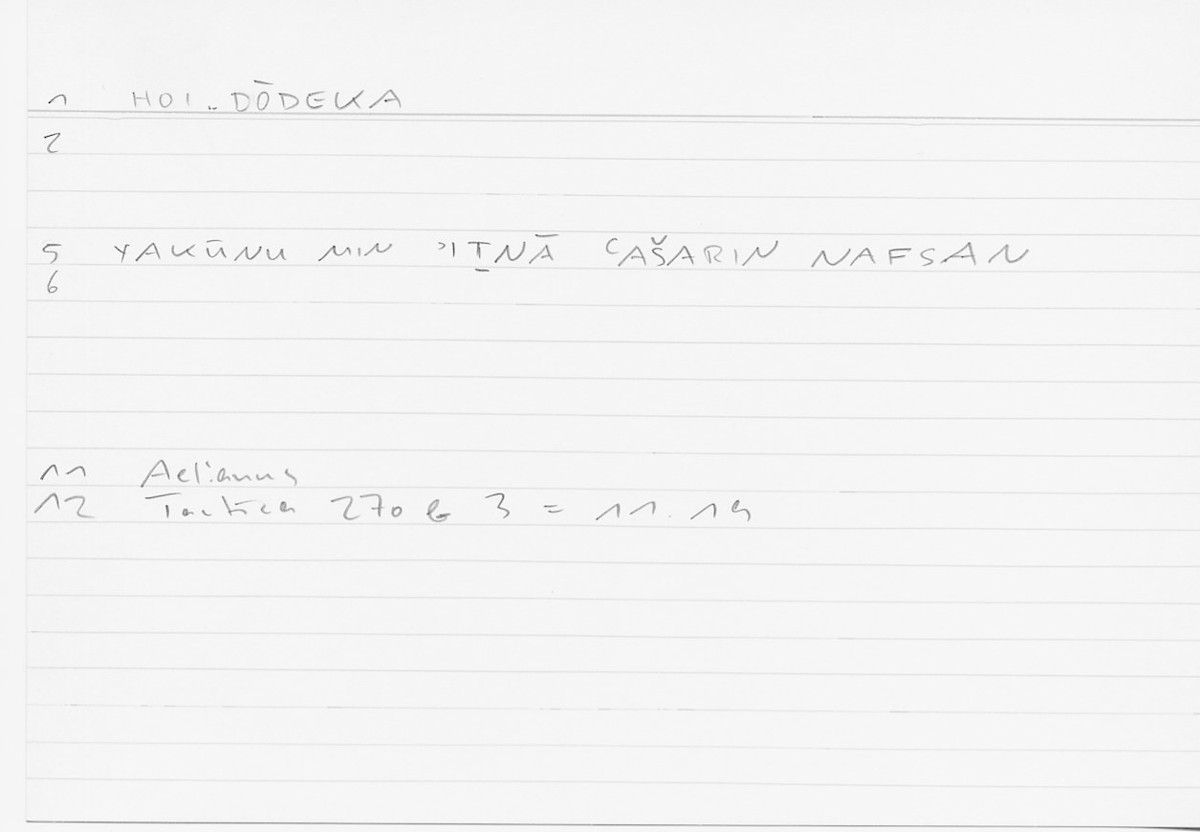 1 HOI .. DŌDEKA
2
5 YAKŪNU MIN ʾIṮNĀ ʿAŠARIN NAFSAN
6
11 Aelianus
12 Tactica 270 b 3 = 11. 19